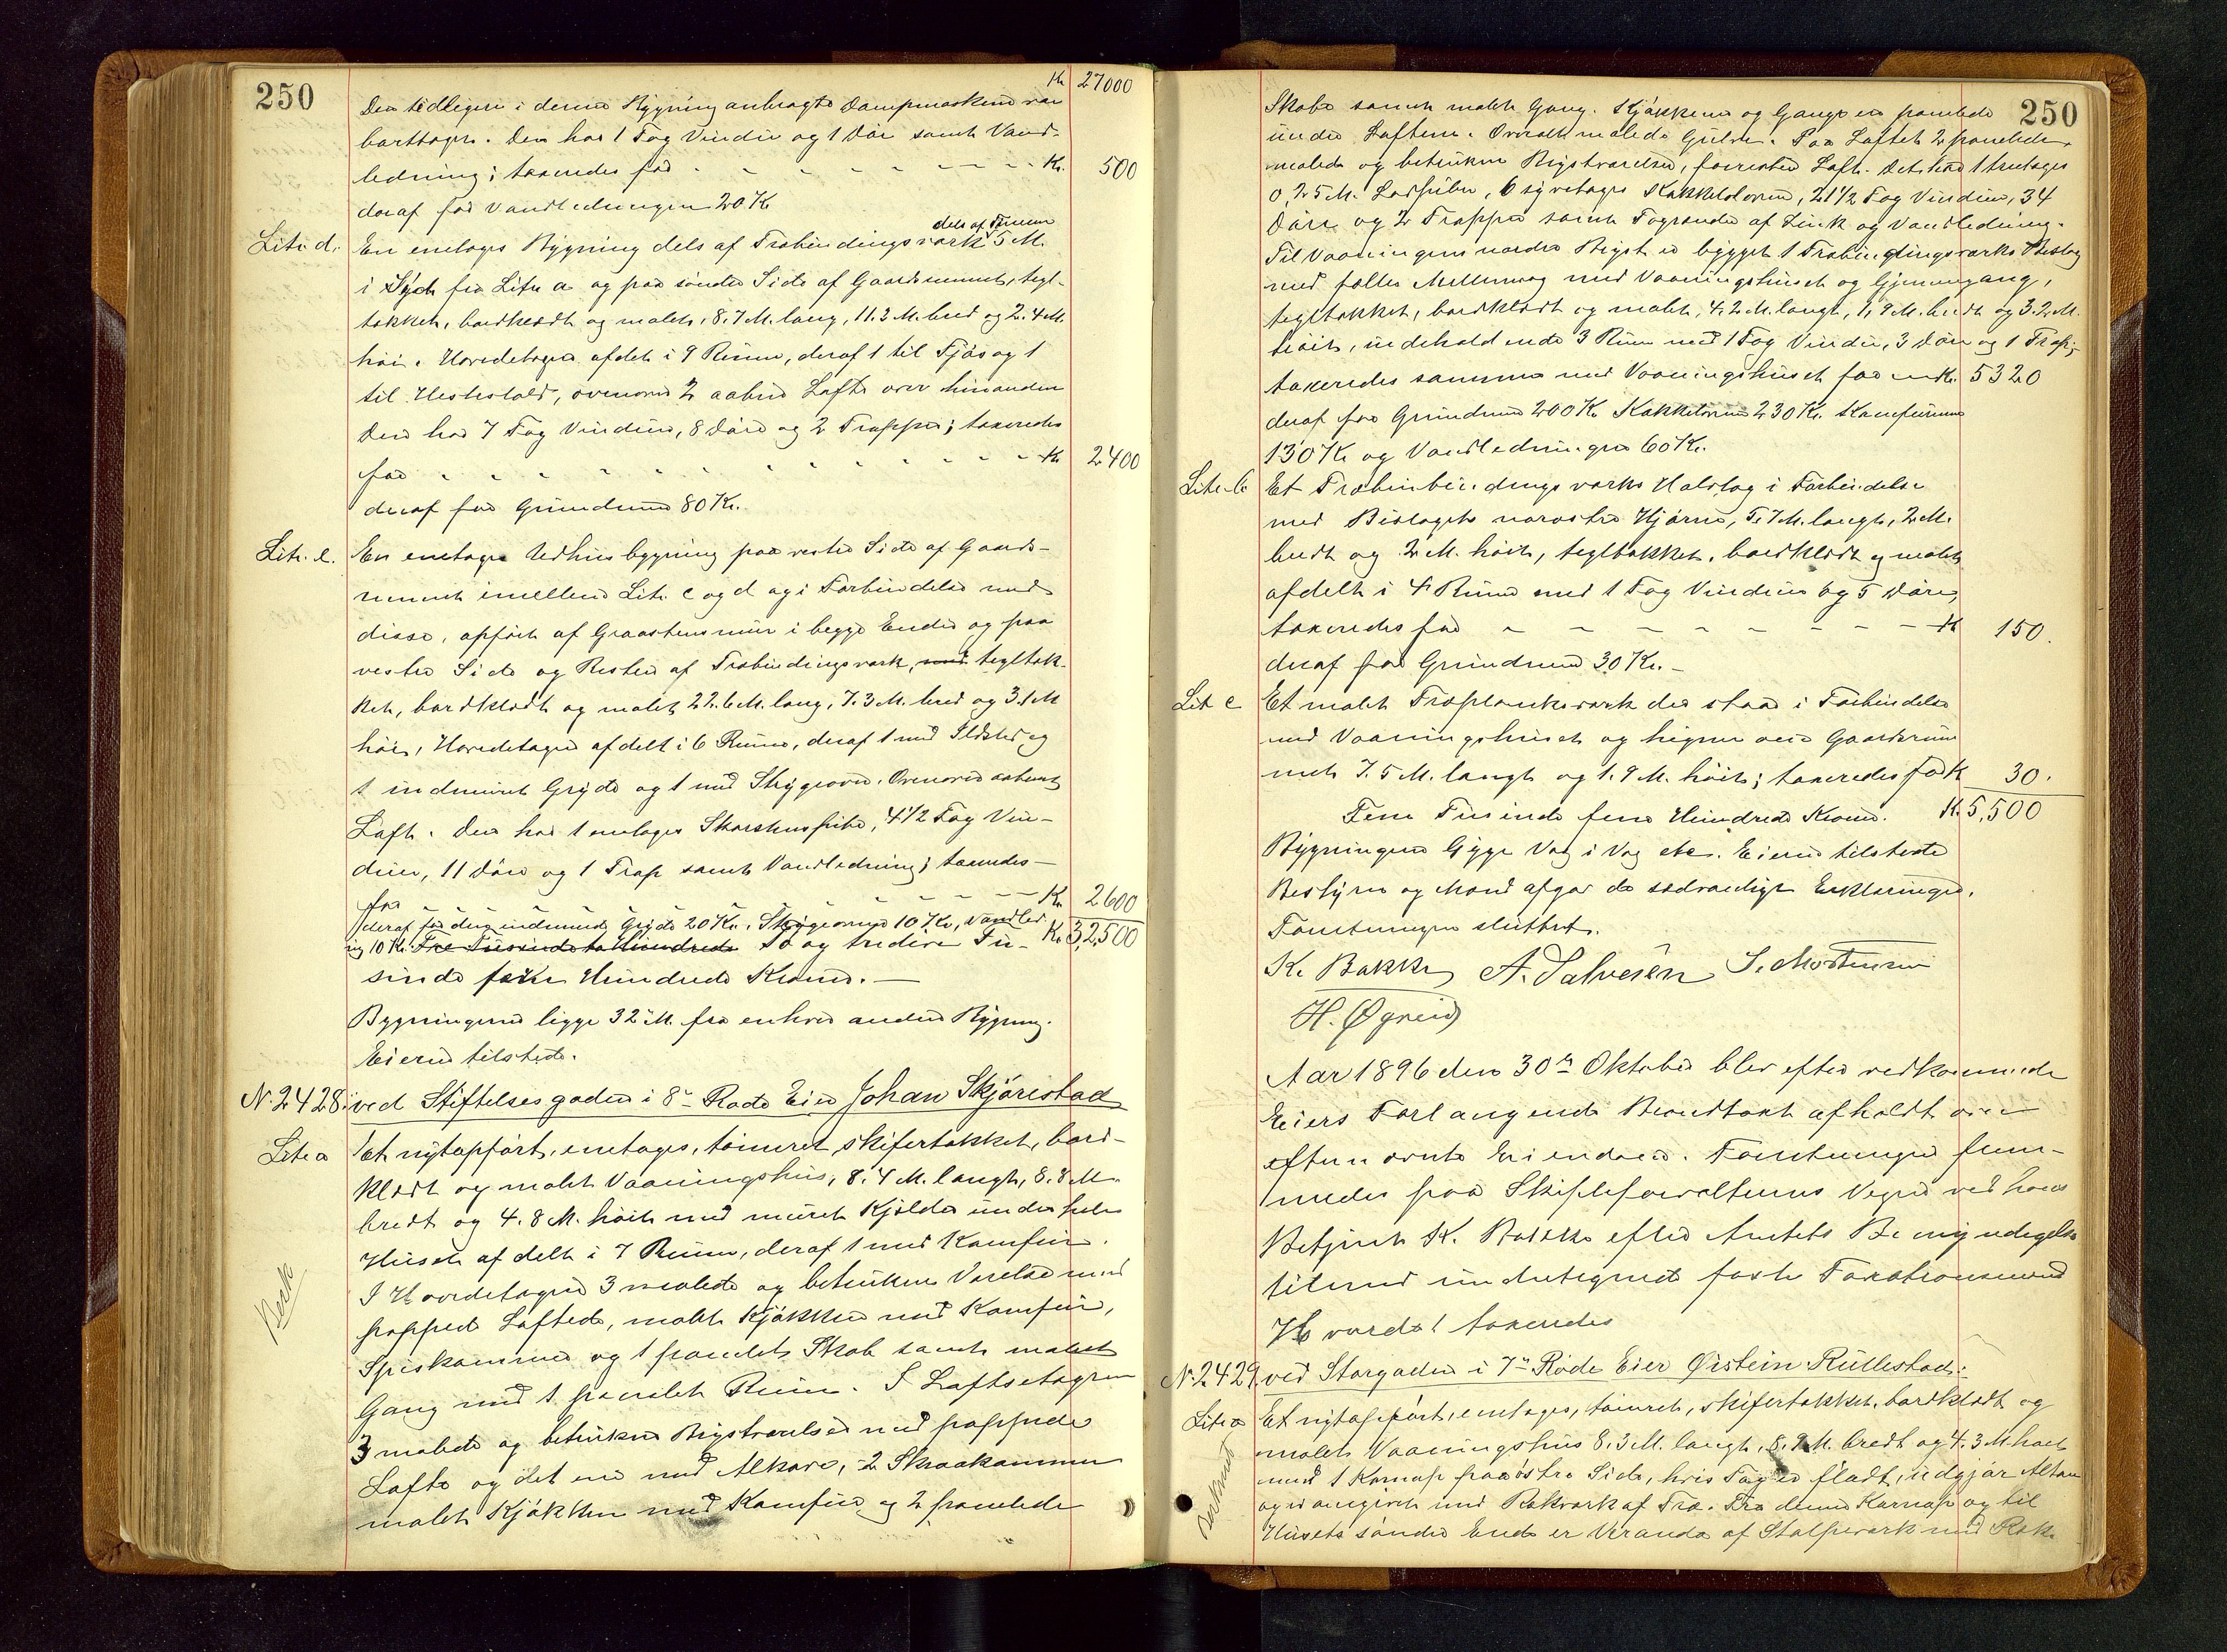 250
Kr 27000
Den tidligere i denne Bygning anbragte Dampmaskine var
borttagen. Den har 1 Fag Vindue og 1 Dør samt Vand-
ledning; taxeredes for - - - - - - - Kr. 500
deraf for Vandledningen 20 Kr
Litr. d. En enetages Bygning dels af Træbindingsværk dels af Tømmer 5 M.
i Syd fra Litr a og paa søndre Side af Gaardsrummet, tegl-
tækket, bordklædt og malet, 8.7 M. lang, 11.3 M. bred og 2.4 M.
høi. Hovedetagen afdelt i 9 Rum, deraf 1 til Fjøs og 1
til Hestestald, ovenover 2 aabne Lofte over hinanden
Den har 7 Fag Vinduer, 8 Døre og 2 Trapper; taxeredes
for - - - - - - - - - - - Kr 2400
deraf for Grundmur 80 Kr.
Litr. e. En enetages Udhusbygning paa vestre Side af Gaards-
rummet imellem Litr. c og d og i Forbindelse med
disse, opført af Graastensmur i begge Ender og paa
vestre Side og Resten af Træbindingsværk, med tegltæk-
ket, bordklædt og malet 22.6 M. lang, 7.3 M. bred og 3.1 M
høi, Hovedetagen afdelt i 6 Rum, deraf 1 med Ildsted og
1 indmuret Gryde og 1 med Strygeovn. Ovenover aabent
Loft. Den har 1 enetages Skorstenspibe, 4 1/2 Fag Vin-
duer, 11 Døre og 1 Trap samt Vandledning; taxeredes
for - - - - - - - - - Kr 2600
deraf for den indmurede Gryde 20 Kr. Strygeovnen 10 Kr, Vandled-
ning 10 Kr. Tre Tusinde to Hundrede To og tredive Tu- Kr. 32,500
sinde fem Hundrede Kroner. —
Bygningerne ligge 32 M. fra enhver anden Bygning.
Eieren tilstede.
No. 2428. ved Stiftelsesgaden i 8de Rode Eier Johan Skjørestad
Litr a Et nytopført, enetages, tømret, skifertækket, bord-
klædt og malet Vaaningshus, 8.4 M. langt, 8.8 M.
bredt og 4.8 M. høit med muret Kjelder under hele
Huset afdelt i 7 Rum, deraf 1 med Komfur.
I Hovedetagen 3 malede og betrukne Værelser med
pappede Lofte, malet Kjøkken med Komfur,
Spiskammer og 1 panelet Skab samt malet
Gang med 1 panelet Rum. I Loftsetagen
3 malede og betrukne Kvistværelser med pappede
Lofte og det ene med Alkove, 2 Skraakammer
malet Kjøkken med Komfur og 2 panelede
250
Skabe samt malet Gang. Kjøkkene og Gange er panelede
under Loftene. Overalt malede Gulve. Paa Loftet 2 panelede,
malede og betrukne Kvistværelser, forresten Loft. Det har 1 treetages
0,25 M. Lodpibe, 6 syvetages Kakkelovne, 21 1/2 Fag Vinduer, 34
Døre og 2 Trapper samt Tagrender af Zink og Vandledning.
Til Vaaningens nordre Kvist er bygget 1 Træbindingsværks Bislag
med fælles Mellemvæg med Vaaningshuset og Gjennemgang,
tegltækket, bordklædt og malet, 4.2 M. langt, 1.9 M. bredt og 3.2 M.
høit, indeholdende 3 Rum med 1 Fag Vindue, 3 Døre og 1 Trap;
taxeredes sammen med Vaaningshuset for - Kr. 5320
deraf for Grundmur 200 Kr. Kakkelovne 230 Kr. Komfurene
130 Kr og Vandledningen 60 Kr.
Litr. b Et Træbindingsværks Halvtag i Forbindelse
med Bislagets norøstre Hjørne, 5.7 M. langt, 2 M.
bredt og 2 M. høit, tegltækket, bordklædt og malet
afdelt i 4 Rum med 1 Fag Vindue og 5 Døre,
taxeredes for - - - - - - - - Kr 150.
deraf for Grundmur 30 Kr. —
Litr c Et malet Træplankeværk der staar i Forbindelse
med Vaaningshuset og hegner over Gaardsrum-
met 7.5 M. langt og 1.9 M. høit; taxeredes for Kr 30.
Fem Tusinde fem Hundrede Kroner. Kr. 5,500
Bygningerne ligge Væg i Væg etc. Eieren tilstede
Bestyrer og Mænd afgav de sædvanlige Erklæringer.
Forretningen sluttet.
K. Bakke A. Salvesen S. Mortensen
H. Øgreid
Aar 1896 den 30te Oktober blev efter vedkommende
Eiers Forlangende Brandtaxt afholdt over
efternævnte Eiendom. Forretningen frem-
medes paa Skifteforvalterens Vegne ved hans
Betjent K. Bakke efter Amtets Bemyndigelse
tilmed undertegnede faste Taxationsmænd
Hvorda taxeredes
No. 2429. ved Storgaden i 7de Rode Eier Øistein Rullestad:
Litr a Et nytopført, enetages, tømret, skifertækket, bordklædt og
malet Vaaningshus 8.3 M. langt, 8.2 M. bredt og 4.3 M. høit
med 1 Karnap paa østre Side, hvis Tag er fladt, udgjør Altan
og er omgivet med Rækværk af Træ. Fra denne Karnap og til
Husets søndre Ende er Veranda af Stolpeværk med Ræk-